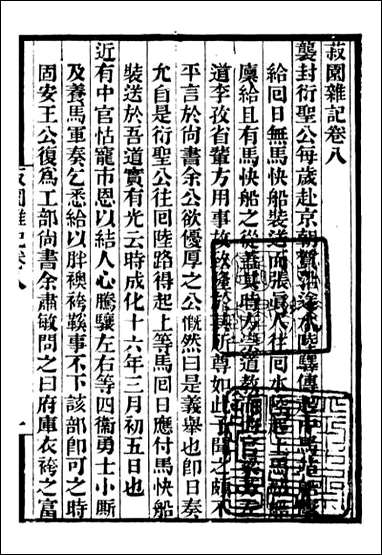 菽園雜記卷八
襲封衍聖公每歲赴京朝賀沿途水陸驛傳起中馬站船廩
給回日無馬快船裝送而張真人往回水陸起上馬站船
廩給且有馬快船之從蓋其時方崇道教而內官梁芳左
道李孜省輩方用事故致隆於其所尊如此予聞之頗不
平言於尚書余公欲優厚之公慨然曰是義舉也即日奏
允自是衍聖公往回陸路得起上等馬回日應付馬快船
裝送於吾道實有光云時成化十六年三月初五日也
近有中官怙寵市恩以結人心騰驤左右等四衛勇士小廝
及養馬軍奏乞悉給以胖襖袴鞋事不下該部即可之時
固安王公復為工部尚書余肅敏問之曰府庫衣袴之富
菽園雜記卷八
一